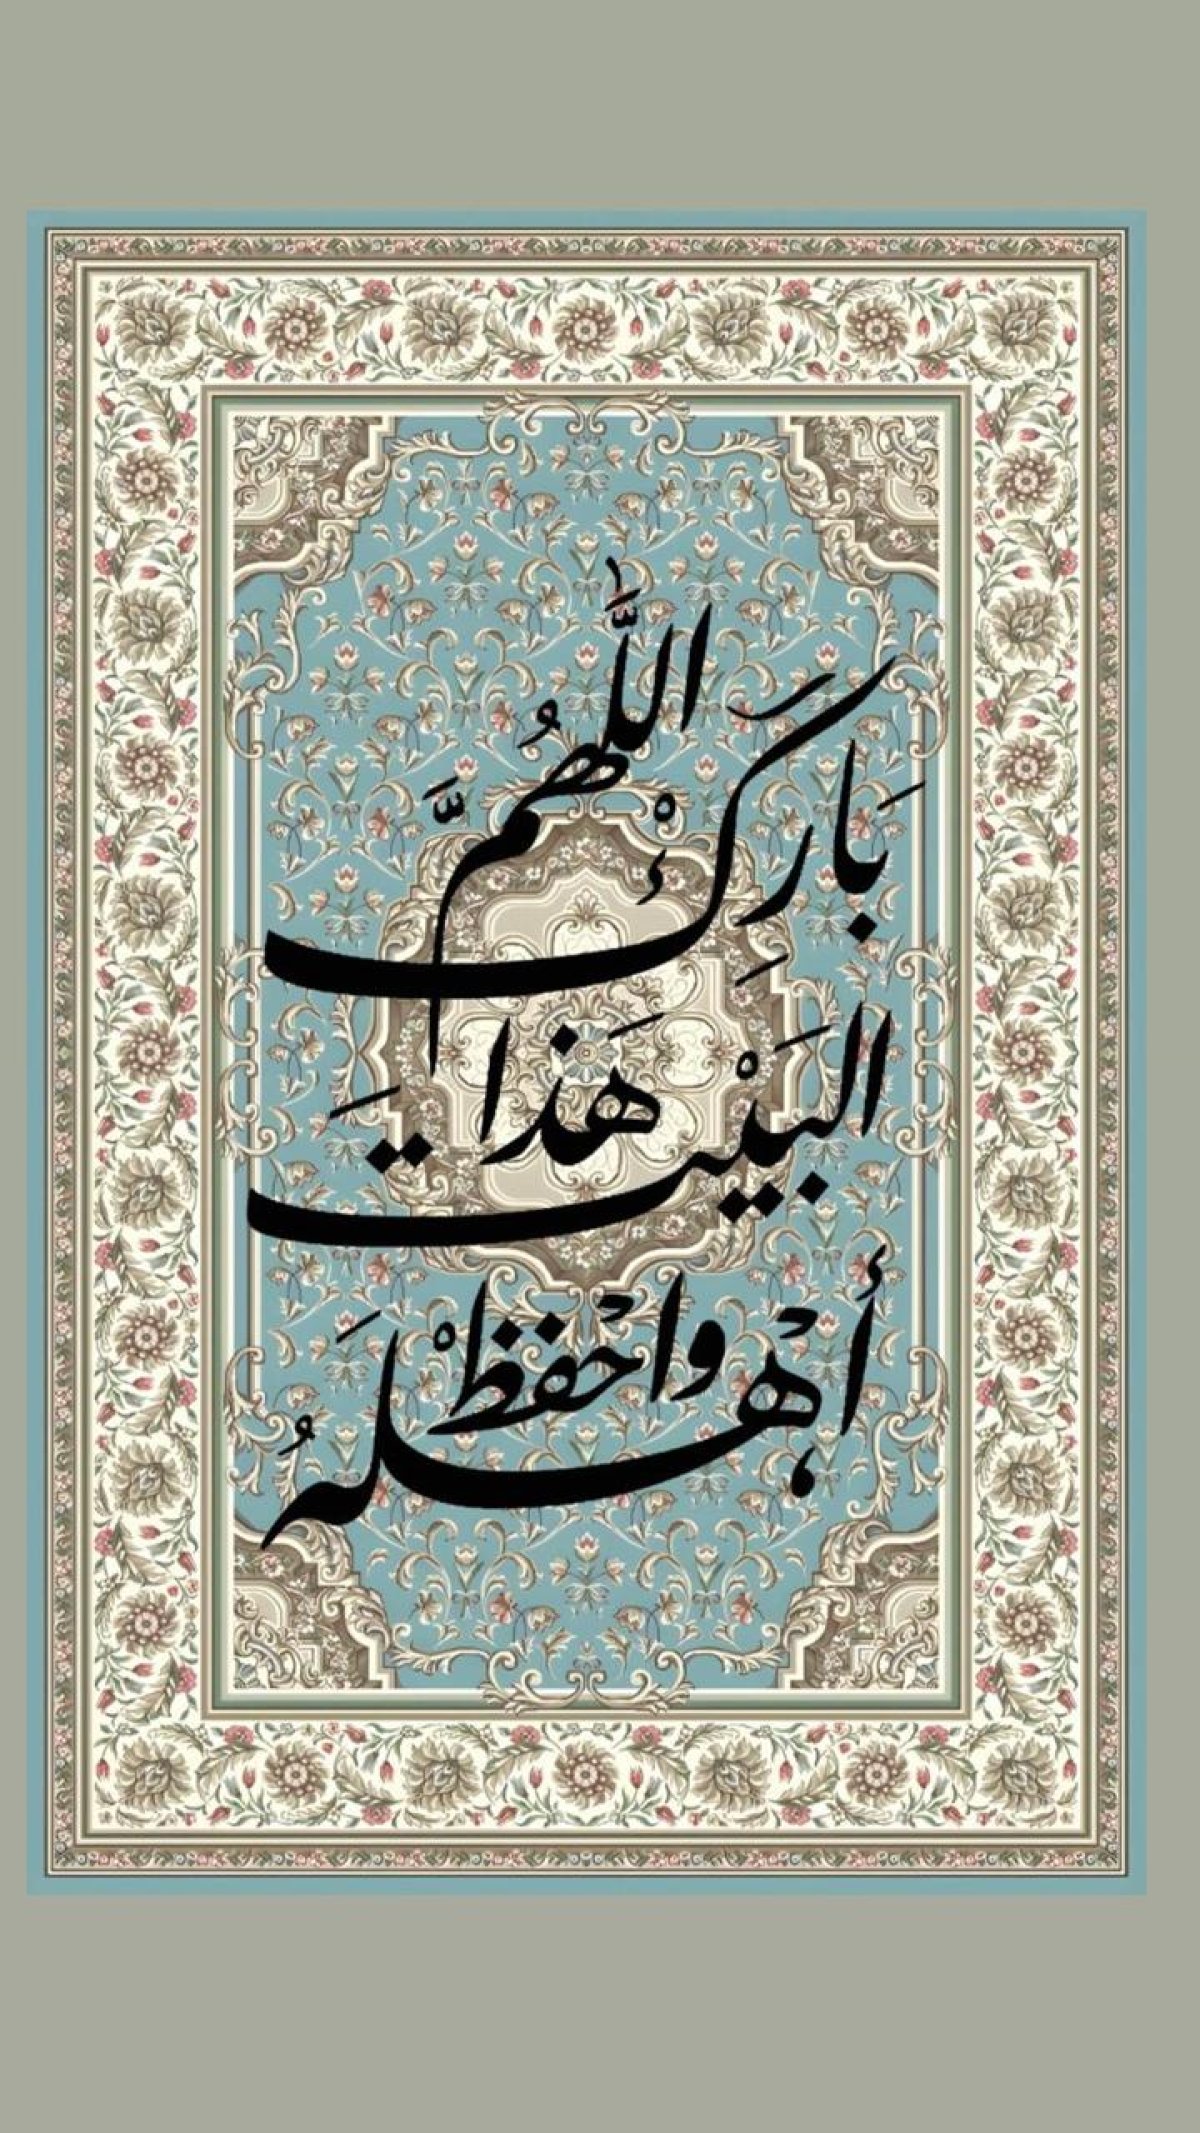 اللّٰهُمَّ
بَارِكْ
هَذَا
الْبَيْتَ
وَاحْفَظْ
أَهْلَهُ